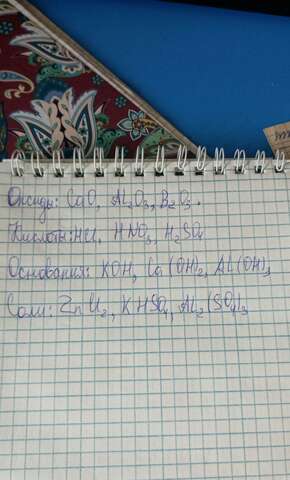 Оксиды: CaO, Al₂O₃, B₂O₃.
Кислоты: HCl, HNO₃, H₂SO₄
Основания: KOH, Ca(OH)₂, Al(OH)₃
Соли: ZnCl₂, KHSO₄, Al₂(SO₄)₃